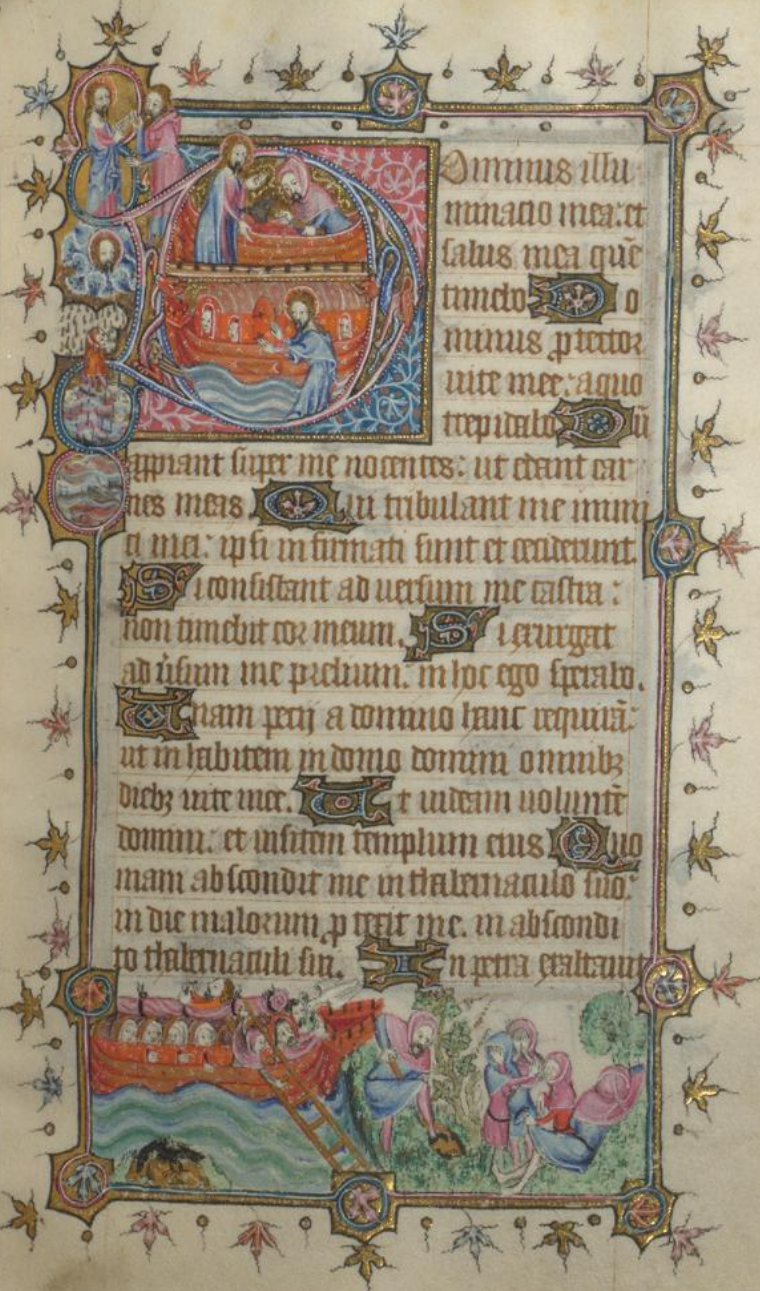 Dominus illu
minacio mea: et
salus mea quē
timebo Do
minus ꝓtector
uite mee: a quo
trepidabo Dū
appiant super me nocentes: ut edant car
nes meas Qui tribulant me inimi
ci mei: ipsi infirmati sunt et ceciderunt.
Si consistant aduersum me castra:
non timebit cor meum. Si exurgat
ad ūsum me prelium: in hoc ego sperabo.
Unam pecij a domino hanc requirā:
ut inhabitem in domo domini omnibꝫ
diebꝫ uite mee. Ut uideam uoluntē
domini: et uisitem templum eius Quo
niam abscondit me in thabernaculo suo:
in die malorum ꝓtexit me. in abscondi
to thabernaculi sui. In petra exaltauit